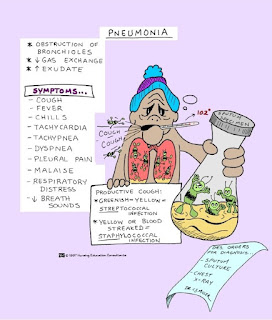 PNEUMONIA
* OBSTRUCTION OF
BRONCHIOLES
* ↓ GAS EXCHANGE
* ↑ EXUDATE
SYMPTOMS...
- COUGH
- FEVER
- CHILLS
- TACHYCARDIA
- TACHYPNEA
- DYSPNEA
- PLEURAL PAIN
- MALAISE
- RESPIRATORY
DISTRESS
- ↓ BREATH
SOUNDS
102°
COUGH
COUGH
SPUTUM
SPECIMEN
PRODUCTIVE COUGH:
* GREENISH-YELLOW =
STREPTOCOCCAL
INFECTION
* YELLOW OR BLOOD
STREAKED =
STAPHYLOCOCCAL
INFECTION
© 2007 Nursing Education Consultants
DR'S ORDERS
FOR DIAGNOSIS:
- SPUTUM
CULTURE
- CHEST
X-RAY